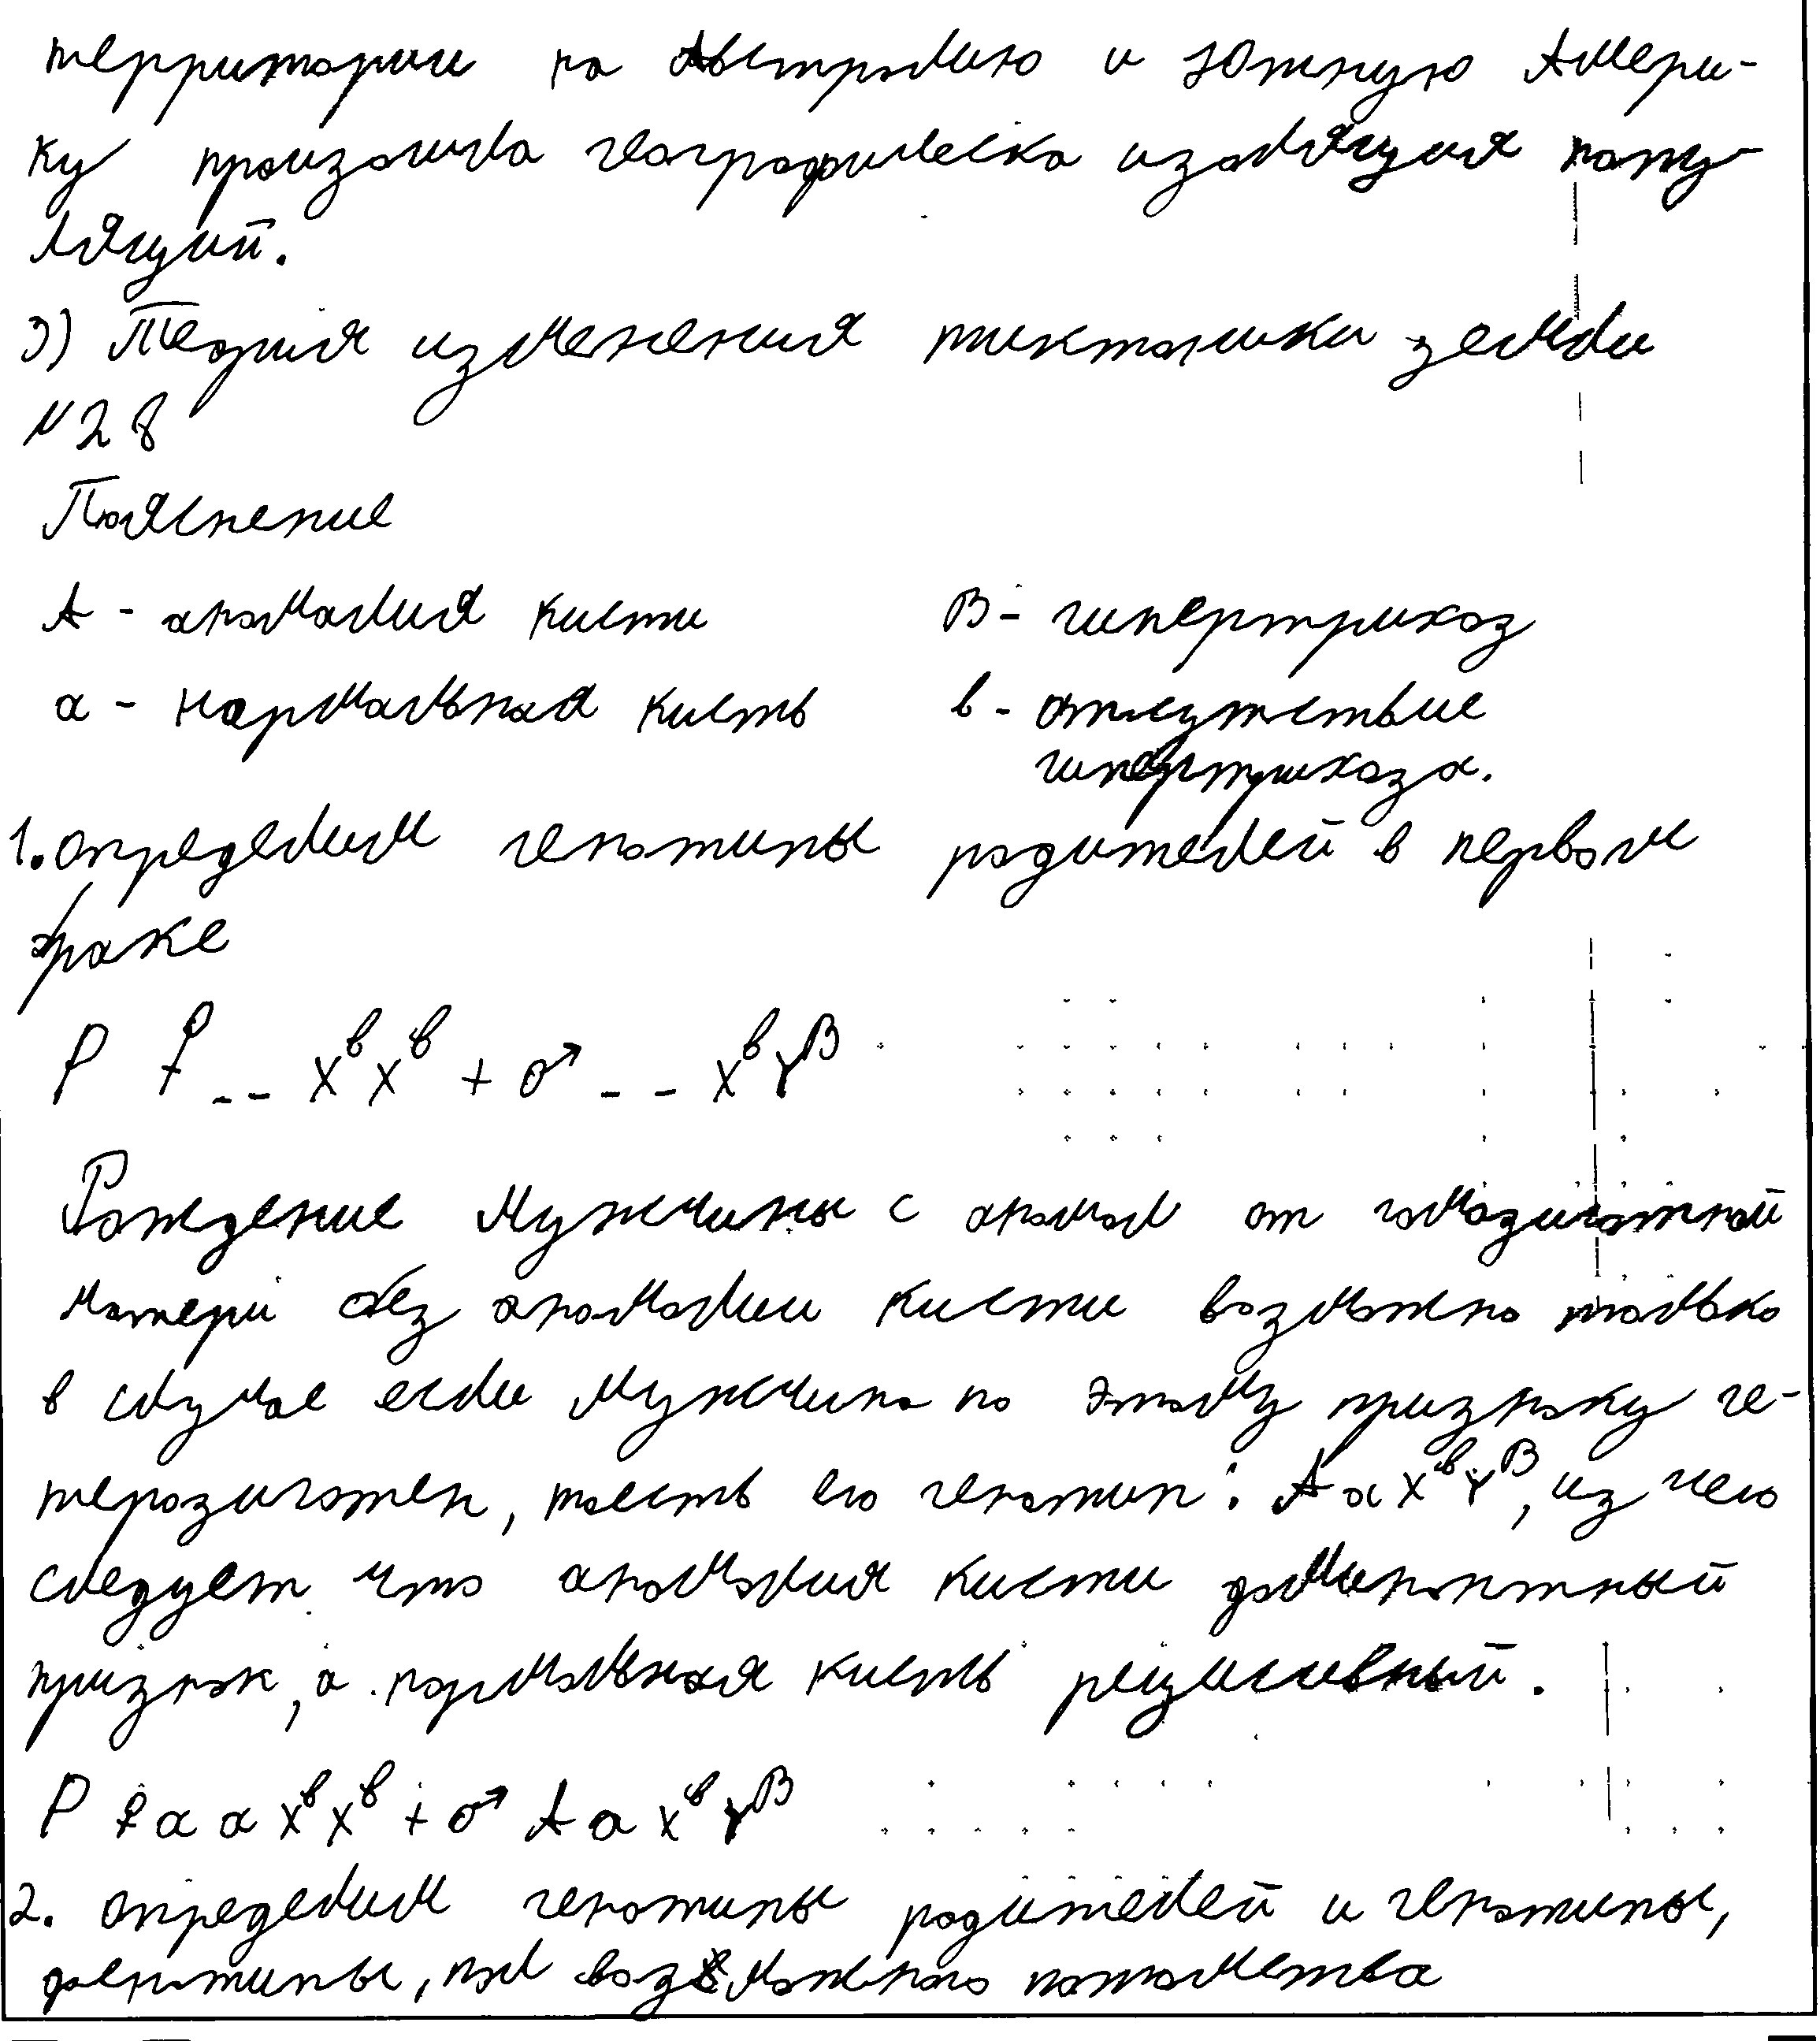 территории на Австралию и Южную Амери-
ку произошла географическа изоляция попу-
ляций.
3) Теория изменения тиктоники земли
№28
Пояснение
А - аномалия кисти В - гипертрихоз
а - нормальная кисть в - отсутствие
гипертрихоза.
1. определим генотипы родителей в первом
браке
Р ♀ _ _ XᵇXᵇ + ♂ _ _ XᵇYᴮ
Рождение мужчины с аномал от гомозиготной
матери без аномалии кисти возможно только
в случае если мужчина по этому признаку ге-
терозиготен, тоесть его генотип: Аа XᵇYᴮ, из чего
следует что аномалия кисти доминантный
признак, а нормальная кисть рецисивный.
Р ♀ а а XᵇXᵇ + ♂ А а XᵇYᴮ
2. определим генотипы родителей и генотипы,
фенотипы, пол возможного потомства